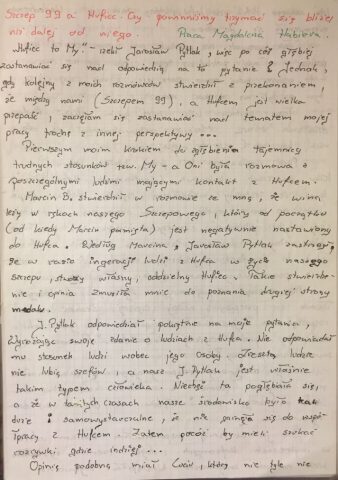 Szczep 99 a Hufiec. Czy powinniśmy trzymać się bliżej
niż dalej od niego. Praca Magdaleny
"Hufiec to My" - rzekł Jarosław Pytlak, więc po cóż głębiej
zastanawiać się nad odpowiedzią na to pytanie? Jednak,
gdy kolejny z moich rozmówców stwierdził z przekonaniem,
że między nami (Szczepem 99), a Hufcem jest wielka
przepaść, zaczęłam się zastanawiać nad tematem mojej
pracy trochę z innej perspektywy...
Pierwszym moim krokiem do zgłębienia tajemnicy
trudnych stosunków tzw. My - a Oni była rozmowa z
poszczególnymi ludźmi mającymi kontakt z Hufcem.
Marcin B. stwierdził w rozmowie ze mną, że wina
leży w rękach naszego Szczepowego, który od początku
(od kiedy Marcin pamięta) jest negatywnie nastawiony
do Hufca. Według Marcina, Jarosław Pytlak
że w razie ingerencji ludzi z Hufca w życie naszego
szczepu, własny, oddzielny Hufiec. Takie stwierdze-
nie i opinia zmusiła mnie do poznania drugiej strony
medalu.
J. Pytlak odpowiadał pokrętnie na moje pytania,
wyrażając swoje zdanie o ludziach z Hufca. Nie odpowiadał
mu stosunek ludzi wobec jego osoby. Zresztą ludzie
nie lubią szefów, a nasz J. Pytlak jest właśnie
takim typem człowieka. Niechęć ta pogłębiała się,
a że w tamtych czasach nasze środowisko było tak
duże i samowystarczalne, że nie się do współ-
pracy z Hufcem. Zatem pocóż by mieli szukać
rozrywki gdzie indziej...
Opinię podobną miał , który nie tyle nie